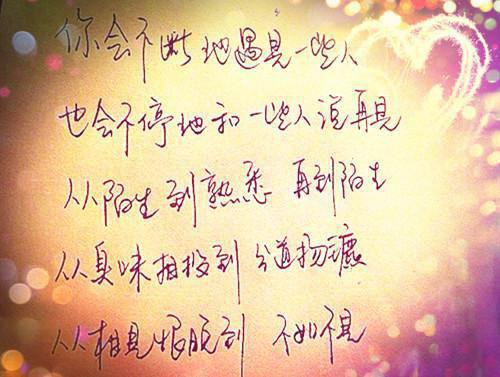 你会不断地遇见一些人
也会不停地和一些人说再见
从陌生到熟悉 再到陌生
从臭味相投到 分道扬镳
从相见恨晚到 不如不见